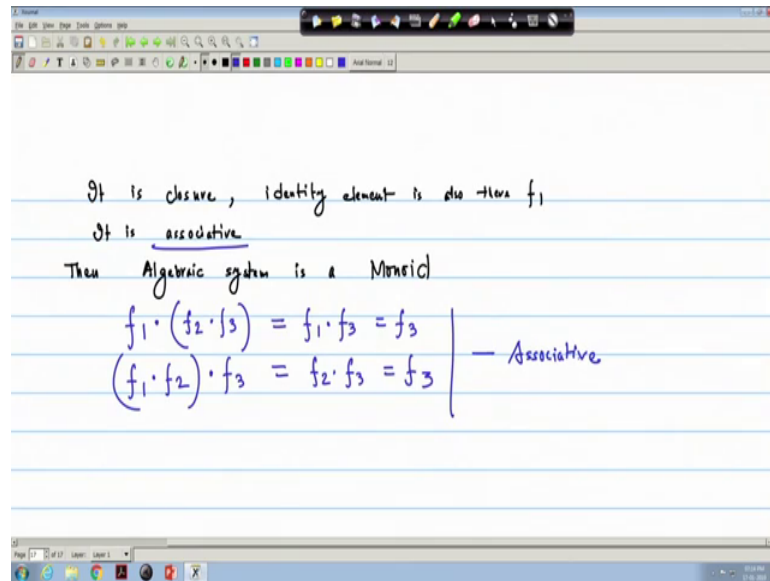 Journal
File Edit View Page Tools Options Help
Arial Normal 12
It is closure, identity element is also there f1
It is associative
Then Algebraic system is a Monoid
f1 · (f2 · f3) = f1 · f3 = f3
(f1 · f2) · f3 = f2 · f3 = f3
— Associative
Page 17 of 17 Layer: Layer 1